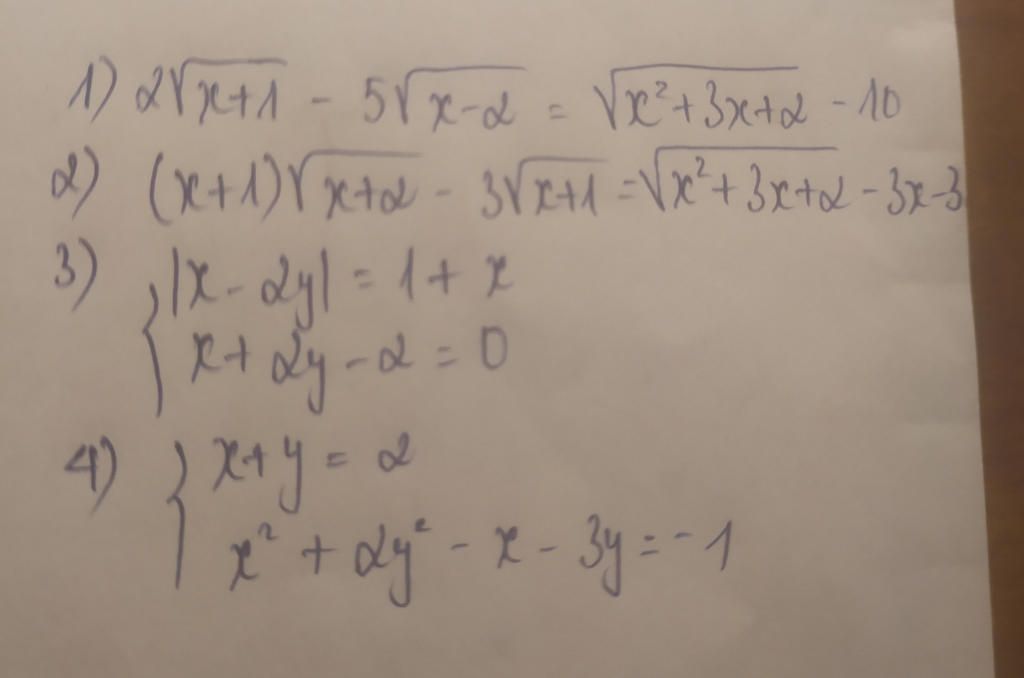 1) 2√(x+1) - 5√(x-2) = √(x²+3x+2) - 10
2) (x+1)√(x+2) - 3√(x+1) = √(x²+3x+2) - 3x-3
3) { |x - 2y| = 1 + x
x + 2y - 2 = 0
4) { x + y = 2
x² + 2y² - x - 3y = -1